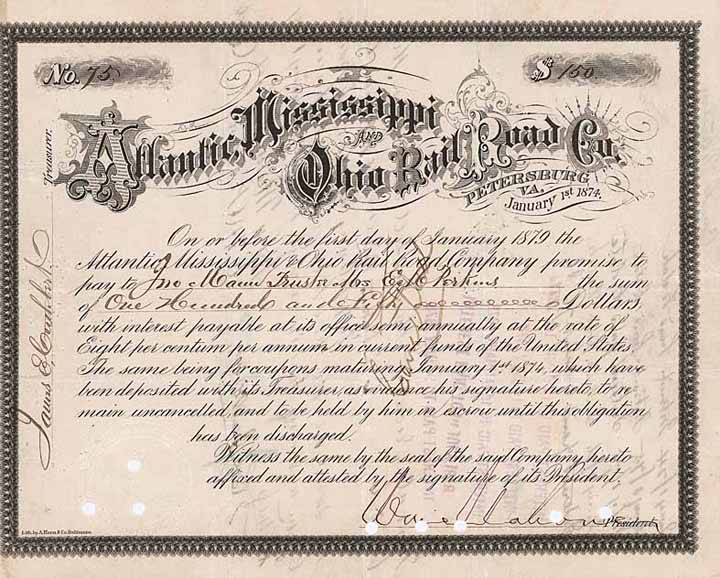 No. 75
$ 150
Atlantic, Mississippi
AND
Ohio Rail Road Co.
PETERSBURG
VA.
January 1st 1874.
On or before the first day of January 1879 the
Atlantic Mississippi & Ohio Rail Road Company promise to
pay to Jno Mann Trustee Mrs Perkins the sum
of One Hundred and Fifty Dollars
with interest payable at its office semi annually at the rate of
Eight per centum per annum in current funds of the United States.
The same being for coupons maturing January 1st 1874, which have
been deposited with its Treasurer, as evidence his signature hereto, to re-
main uncancelled, and to be held by him in escrow until this obligation
has been discharged.
Witness the same by the seal of the said Company hereto
affixed and attested by the signature of its President.
President
Treasurer.
Lith. by A. Hoen & Co. Baltimore.